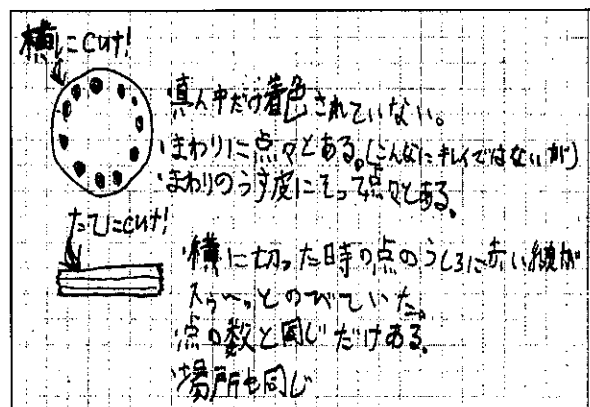 横にcut!
真ん中だけ着色されていない。
・まわりに点々とある。(こんなにキレイではないが)
・まわりのうす皮にそって点々とある。
たてにcut!
・横に切った時の点のうしろに赤い線が
スゥ〜っとのびていた。
・点の数と同じだけある。
・場所も同じ